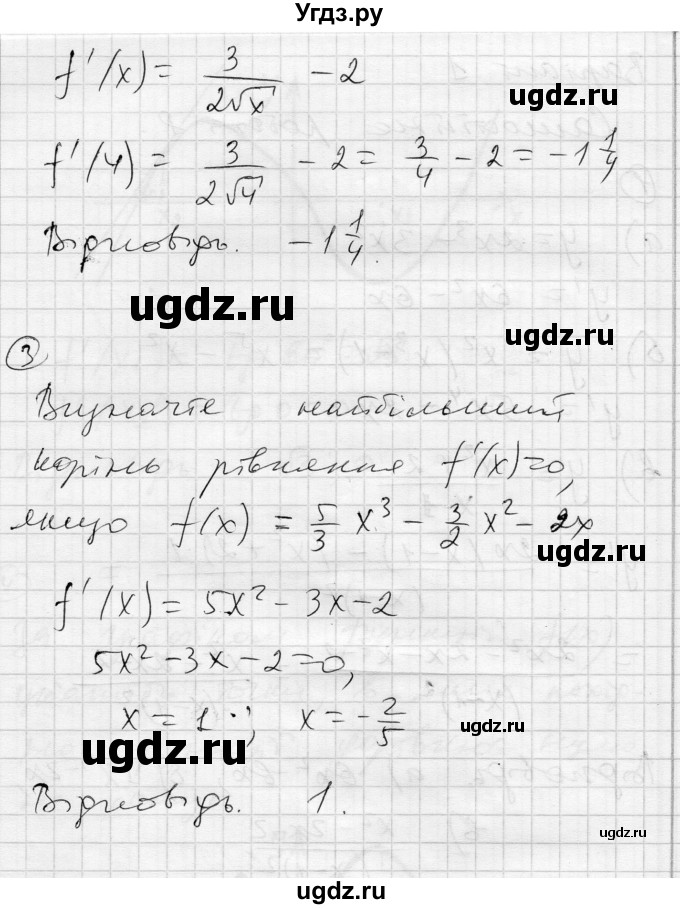 Угдз.ру
f'(x) = 3/(2√x) − 2
ugdz.ru
f'(4) = 3/(2√4) − 2 = 3/4 − 2 = −1 1/4
ugdz.ru
Відповідь. −1 1/4.
ugdz.ru
ugdz.ru
3
Визначте найбільший
корінь рівняння f'(x)=0,
якщо f(x) = 5/3 x³ − 3/2 x² − 2x
ugdz.ru
ugdz.ru
f'(x) = 5x² − 3x − 2
5x² − 3x − 2 = 0,
x = 1 ; x = −2/5
ugdz.ru
ugdz.ru
Відповідь. 1.
ugdz.ru
ugdz.ru